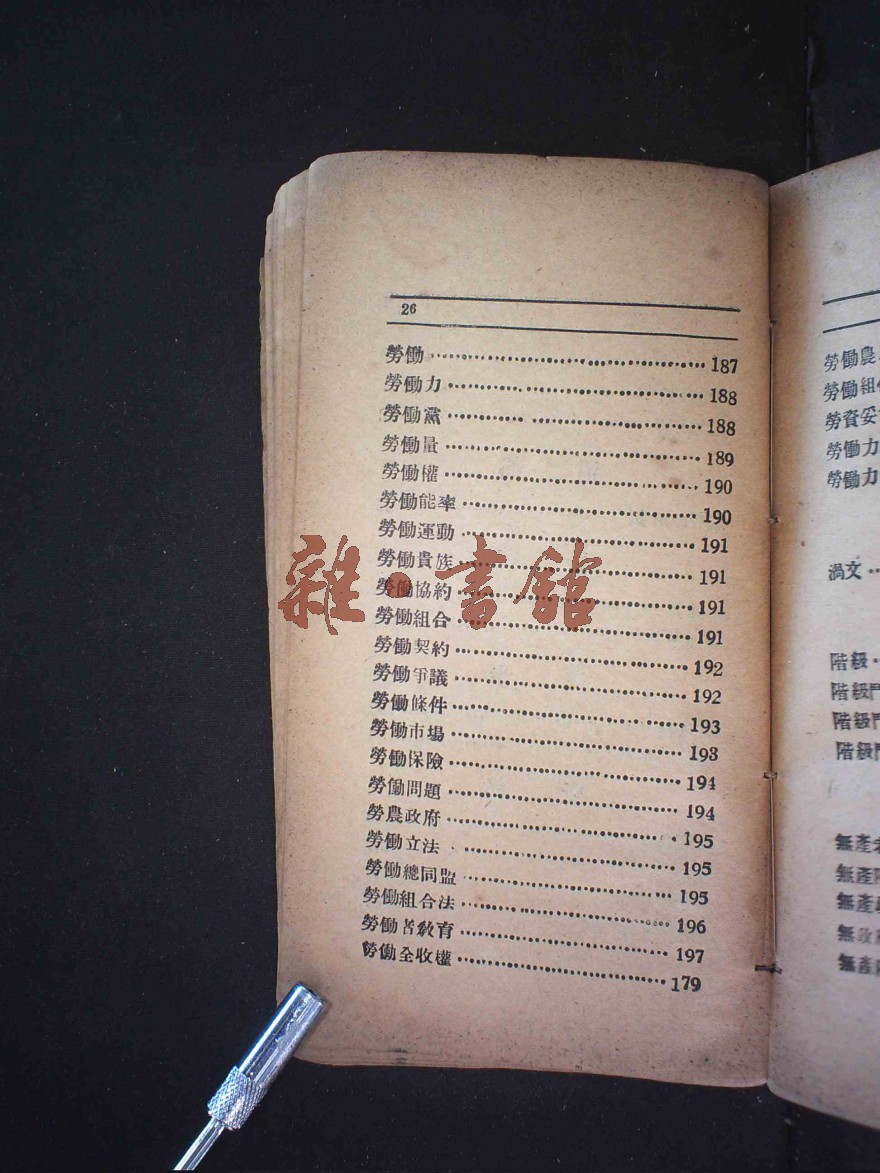 26
勞働 187
勞働力 188
勞働黨 188
勞働量 189
勞働權 190
勞働能率 190
勞働運動 191
勞働貴族 191
勞働協約 191
勞働組合 191
勞働契約 192
勞働爭議 192
勞働條件 193
勞働市場 193
勞働保險 194
勞働問題 194
勞農政府 195
勞働立法 195
勞働總同盟 195
勞働組合法 196
勞働者敎育 197
勞働全收權 179
雜·書館
勞働農
勞働組
勞資妥
勞働力
勞働力
渦文
階級
階級鬥
階級鬥
階級鬥
無產者
無產階
無產政
無政
無產